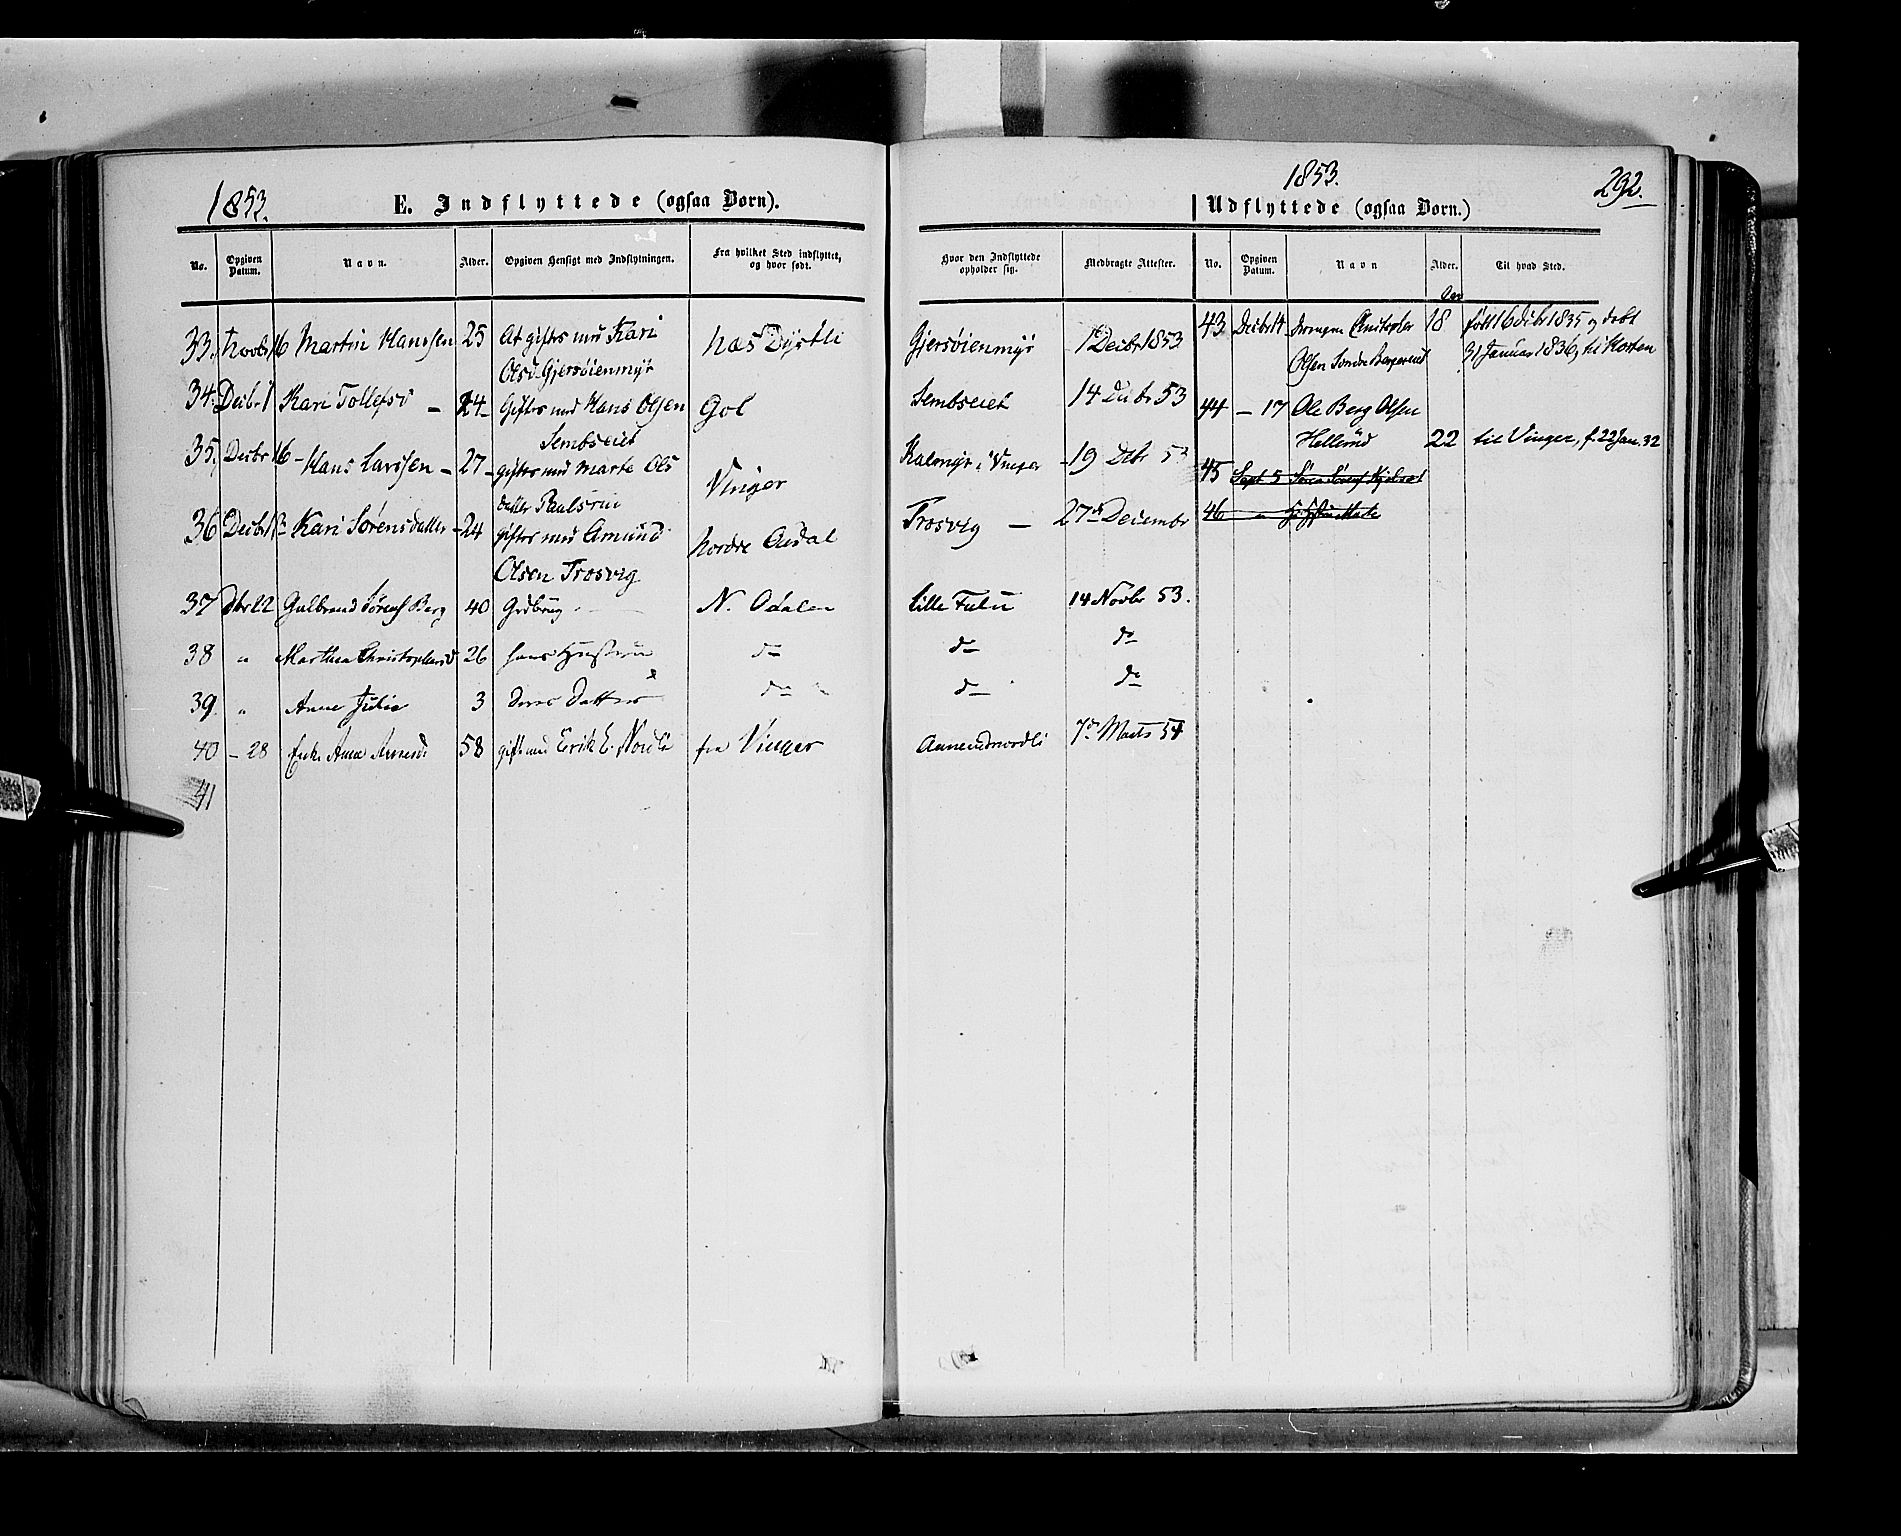 1853.
E. Indflyttede (ogsaa Børn).
No.
Opgiven Datum.
Navn.
Alder.
Opgiven Hensigt med Indflytningen.
Fra hvilket Sted indflyttet, og hvor født.
33. Novbr 16 Martin Hanssen 25 At giftes med Kari Næs Dystli
Olsd. Gjersøienmyr
34. Decbr 1 Kari Tollefsd – 24 – Giftes med Hans Olsen Gol
Sembseiet
35. Decbr 16 – Hans Larssen – 27 – giftes med Marte Ols Vinger
datter Paulsrud
36 Decbr 13 – Kari Sørensdatter – 24 giftes med Amund Nordre Audal
Olsen Trosvig
37 Dbr 22 Gulbrand Sørens Berg 40 Grdbrug N. Odalen
38 " Marthea Christophersd 26 hans Hustru do
39. " Anne Julie 3 Deres Datter do
40 – 28 Enke Anne Amundsd 58 gift med Erik E. Nordli fra Vinger
41
1853.
292.
Udflyttede (ogsaa Børn.)
Hvor den Indflyttede opholder sig.
Medbragte Attester.
No.
Opgiven Datum.
Navn
Alder.
Til hvad Sted.
Aar
Gjersøienmyr 1 Decbr 1853 43 Decbr 14 Drengen Christopher 18 født 16 Decbr 1835 og døbt
Olsen Søndre Bergerud 31 Januar 1836, til Horten
Sembseiet 14 Decbr 53 44 – 17 Ole Berg Olsen
Hellerud 22 til Vinger, f. 22 Jan. 32
Kalmyr i Vinger – 19 Decbr 53 45 Sept 5
Trosvig – 27de Decembr 46 "
Lille Fulu 14 Novbr 53.
do do
do do
Amundnordli 7de Marts 54